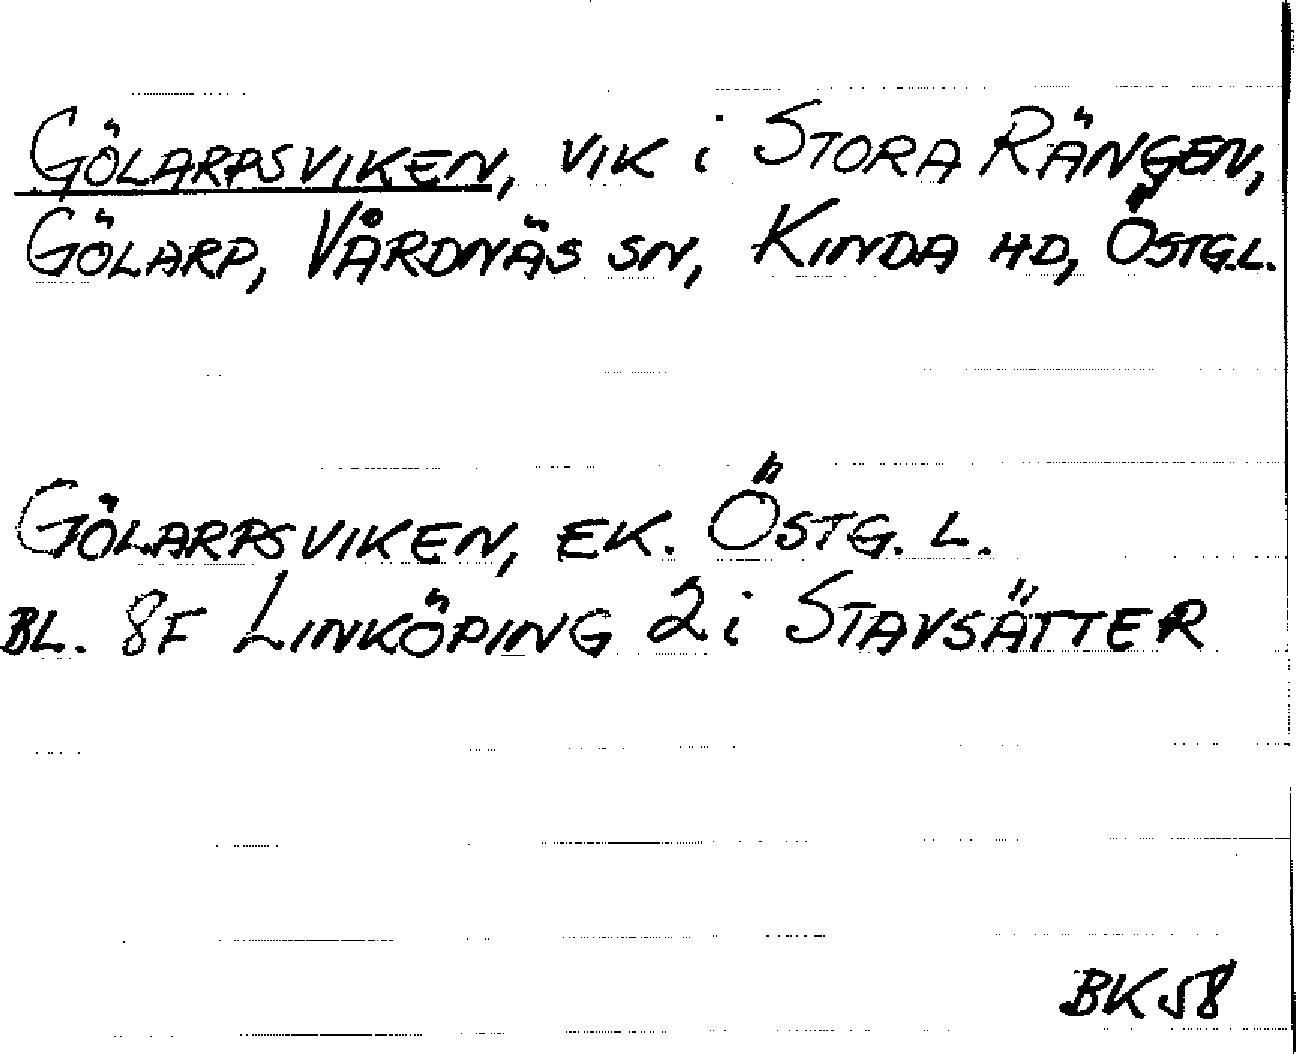 GÖLARPSVIKEN, VIK i STORA RÄNGEN,
GÖLARP, VÅRDNÄS SN, KINDA HD, ÖSTG.L.
GÖLARPSVIKEN, EK. ÖSTG. L.
BL. 8F LINKÖPING 2i STAVSÄTTER
BK58